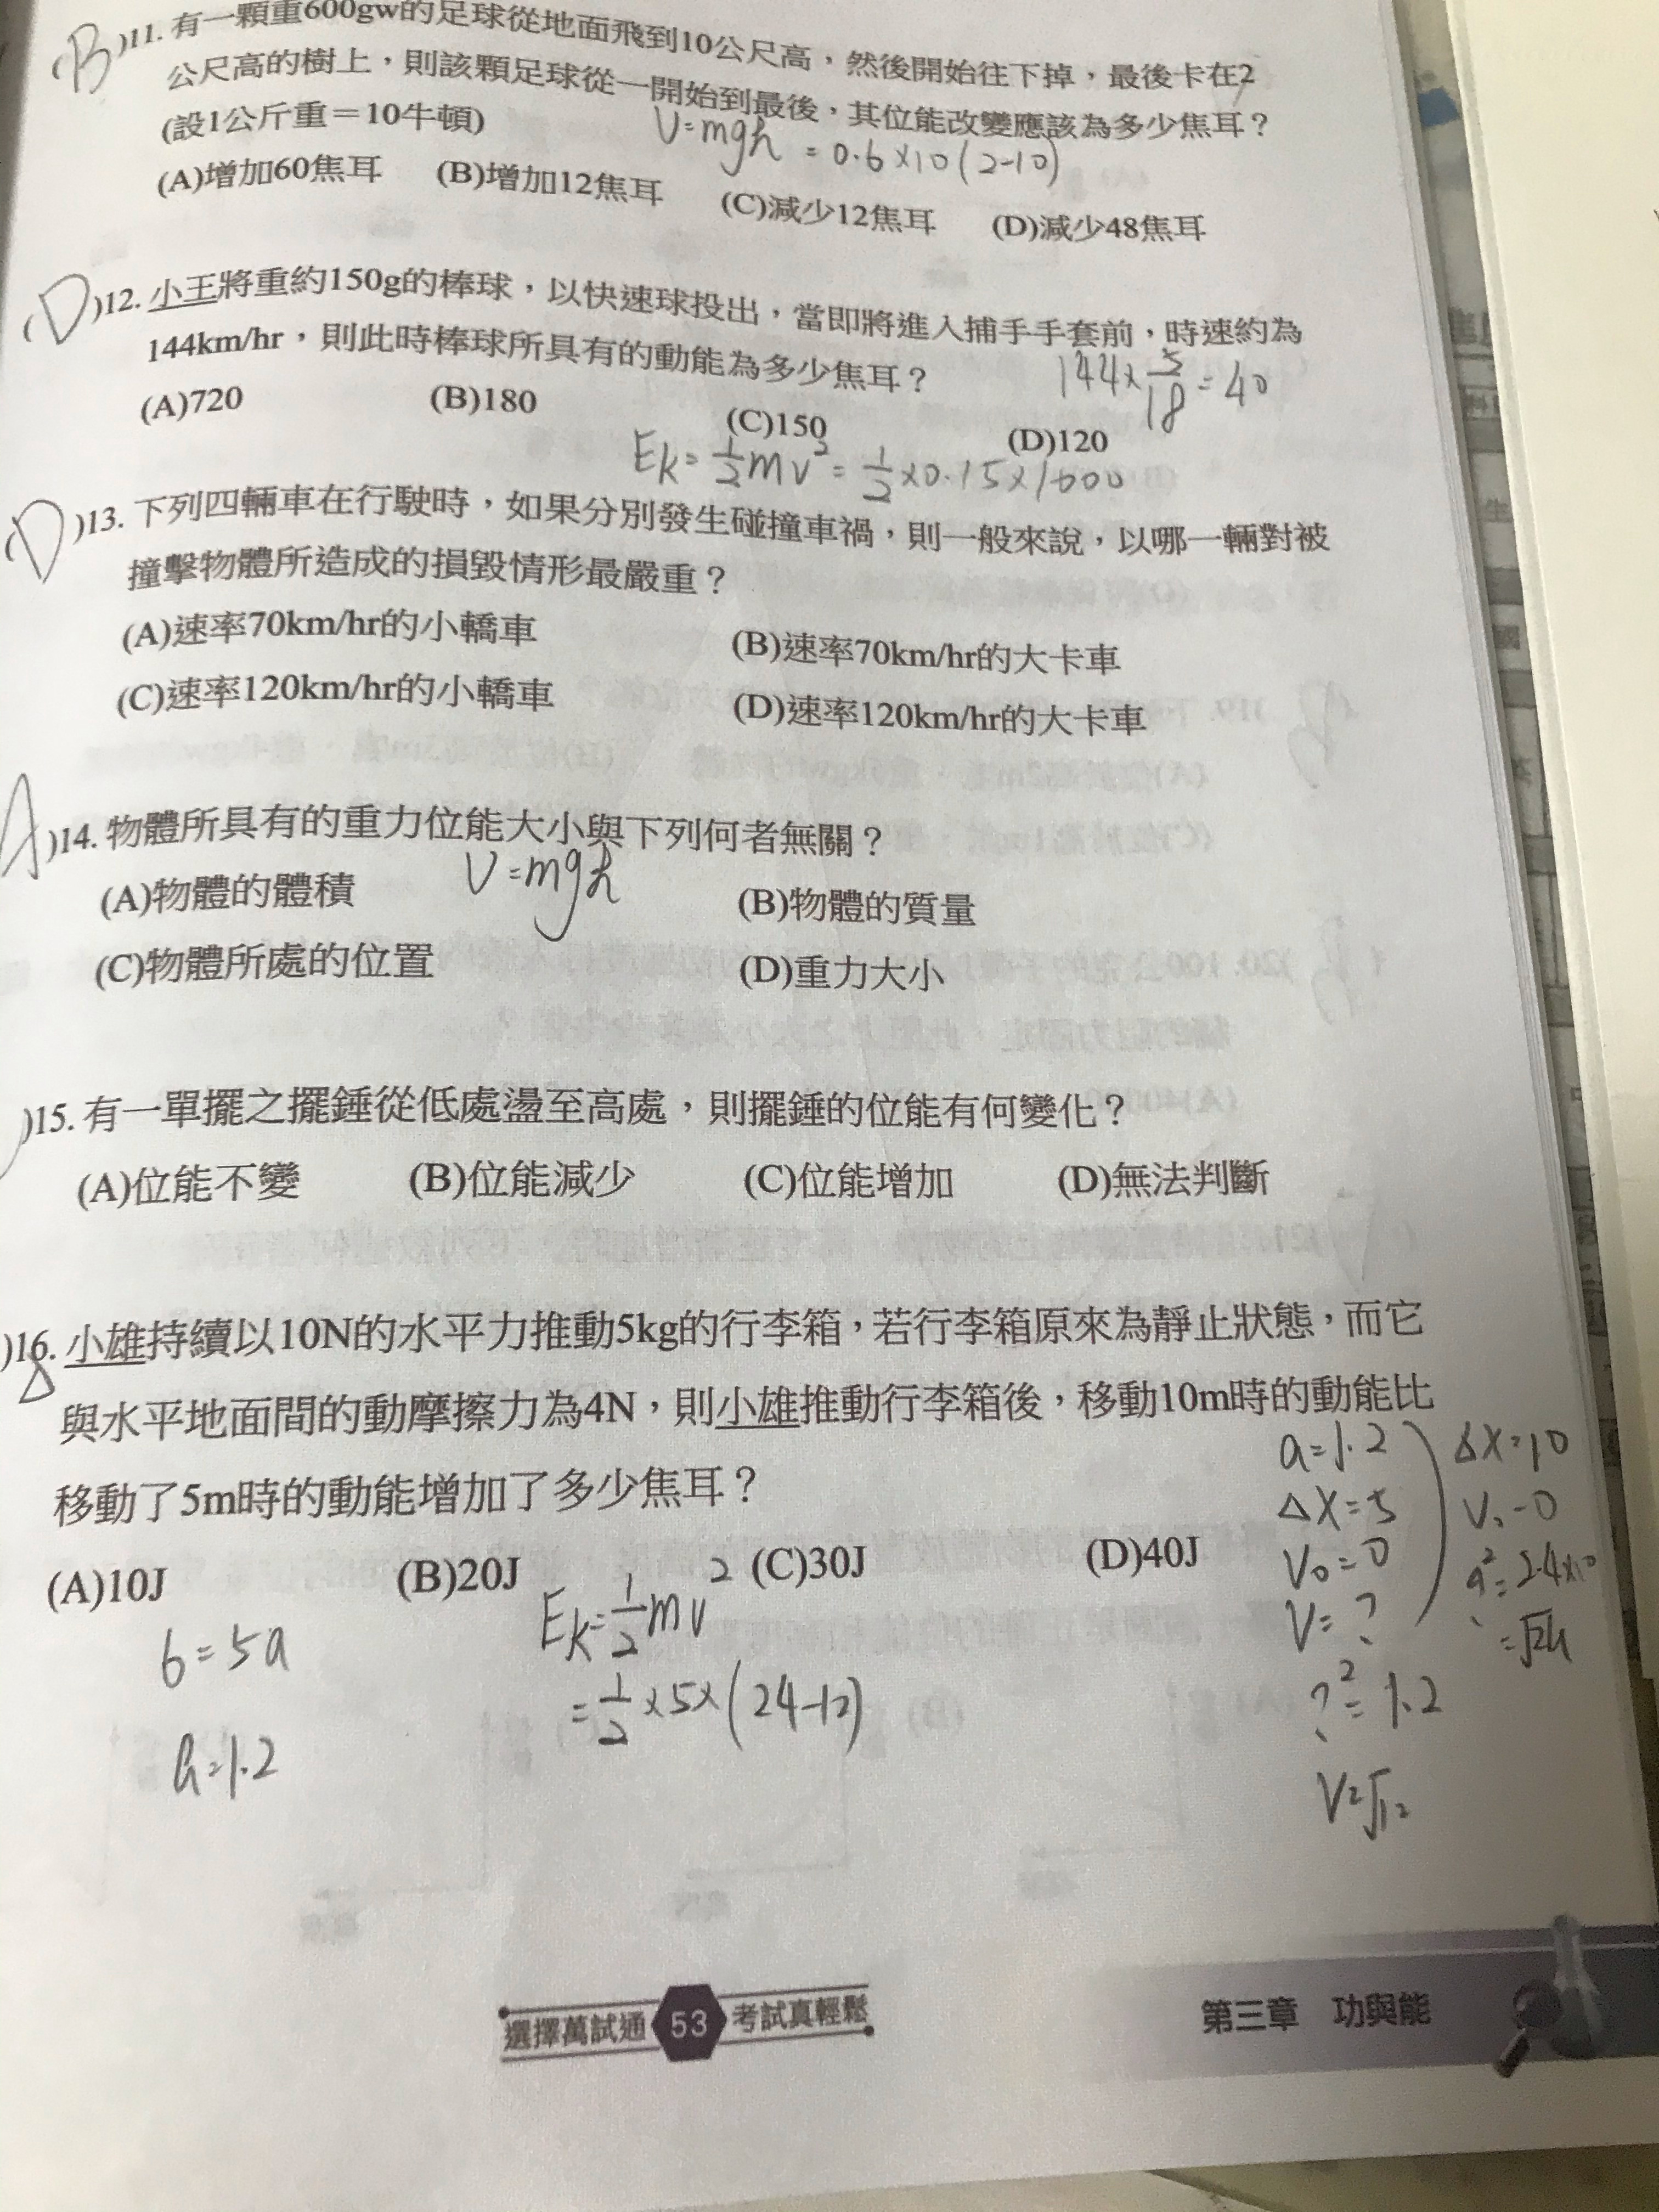 (B)11. 有一顆重600gw的足球從地面飛到10公尺高，然後開始往下掉，最後卡在2
公尺高的樹上，則該顆足球從一開始到最後，其位能改變應該為多少焦耳？
(設1公斤重＝10牛頓)
U=mgh = 0.6×10(2-10)
(A)增加60焦耳 (B)增加12焦耳 (C)減少12焦耳 (D)減少48焦耳
(D)12. 小王將重約150g的棒球，以快速球投出，當即將進入捕手手套前，時速約為
144km/hr，則此時棒球所具有的動能為多少焦耳？
144×5/18=40
(A)720 (B)180 (C)150 (D)120
Ek=1/2mv²=1/2×0.15×1600
(D)13. 下列四輛車在行駛時，如果分別發生碰撞車禍，則一般來說，以哪一輛對被
撞擊物體所造成的損毀情形最嚴重？
(A)速率70km/hr的小轎車 (B)速率70km/hr的大卡車
(C)速率120km/hr的小轎車 (D)速率120km/hr的大卡車
A)14. 物體所具有的重力位能大小與下列何者無關？
U=mgh
(A)物體的體積 (B)物體的質量
(C)物體所處的位置 (D)重力大小
)15. 有一單擺之擺錘從低處盪至高處，則擺錘的位能有何變化？
(A)位能不變 (B)位能減少 (C)位能增加 (D)無法判斷
)16. 小雄持續以10N的水平力推動5kg的行李箱，若行李箱原來為靜止狀態，而它
與水平地面間的動摩擦力為4N，則小雄推動行李箱後，移動10m時的動能比
移動了5m時的動能增加了多少焦耳？
(A)10J (B)20J (C)30J (D)40J
6=5a
a=1.2
Ek=1/2mv²
=1/2×5×(24-12)
a=1.2
Δx=5
V₀=0
V=?
?²=1.2
V=√12
Δx=10
V₀=0
=√24
選擇萬試通 53 考試真輕鬆
第三章 功與能